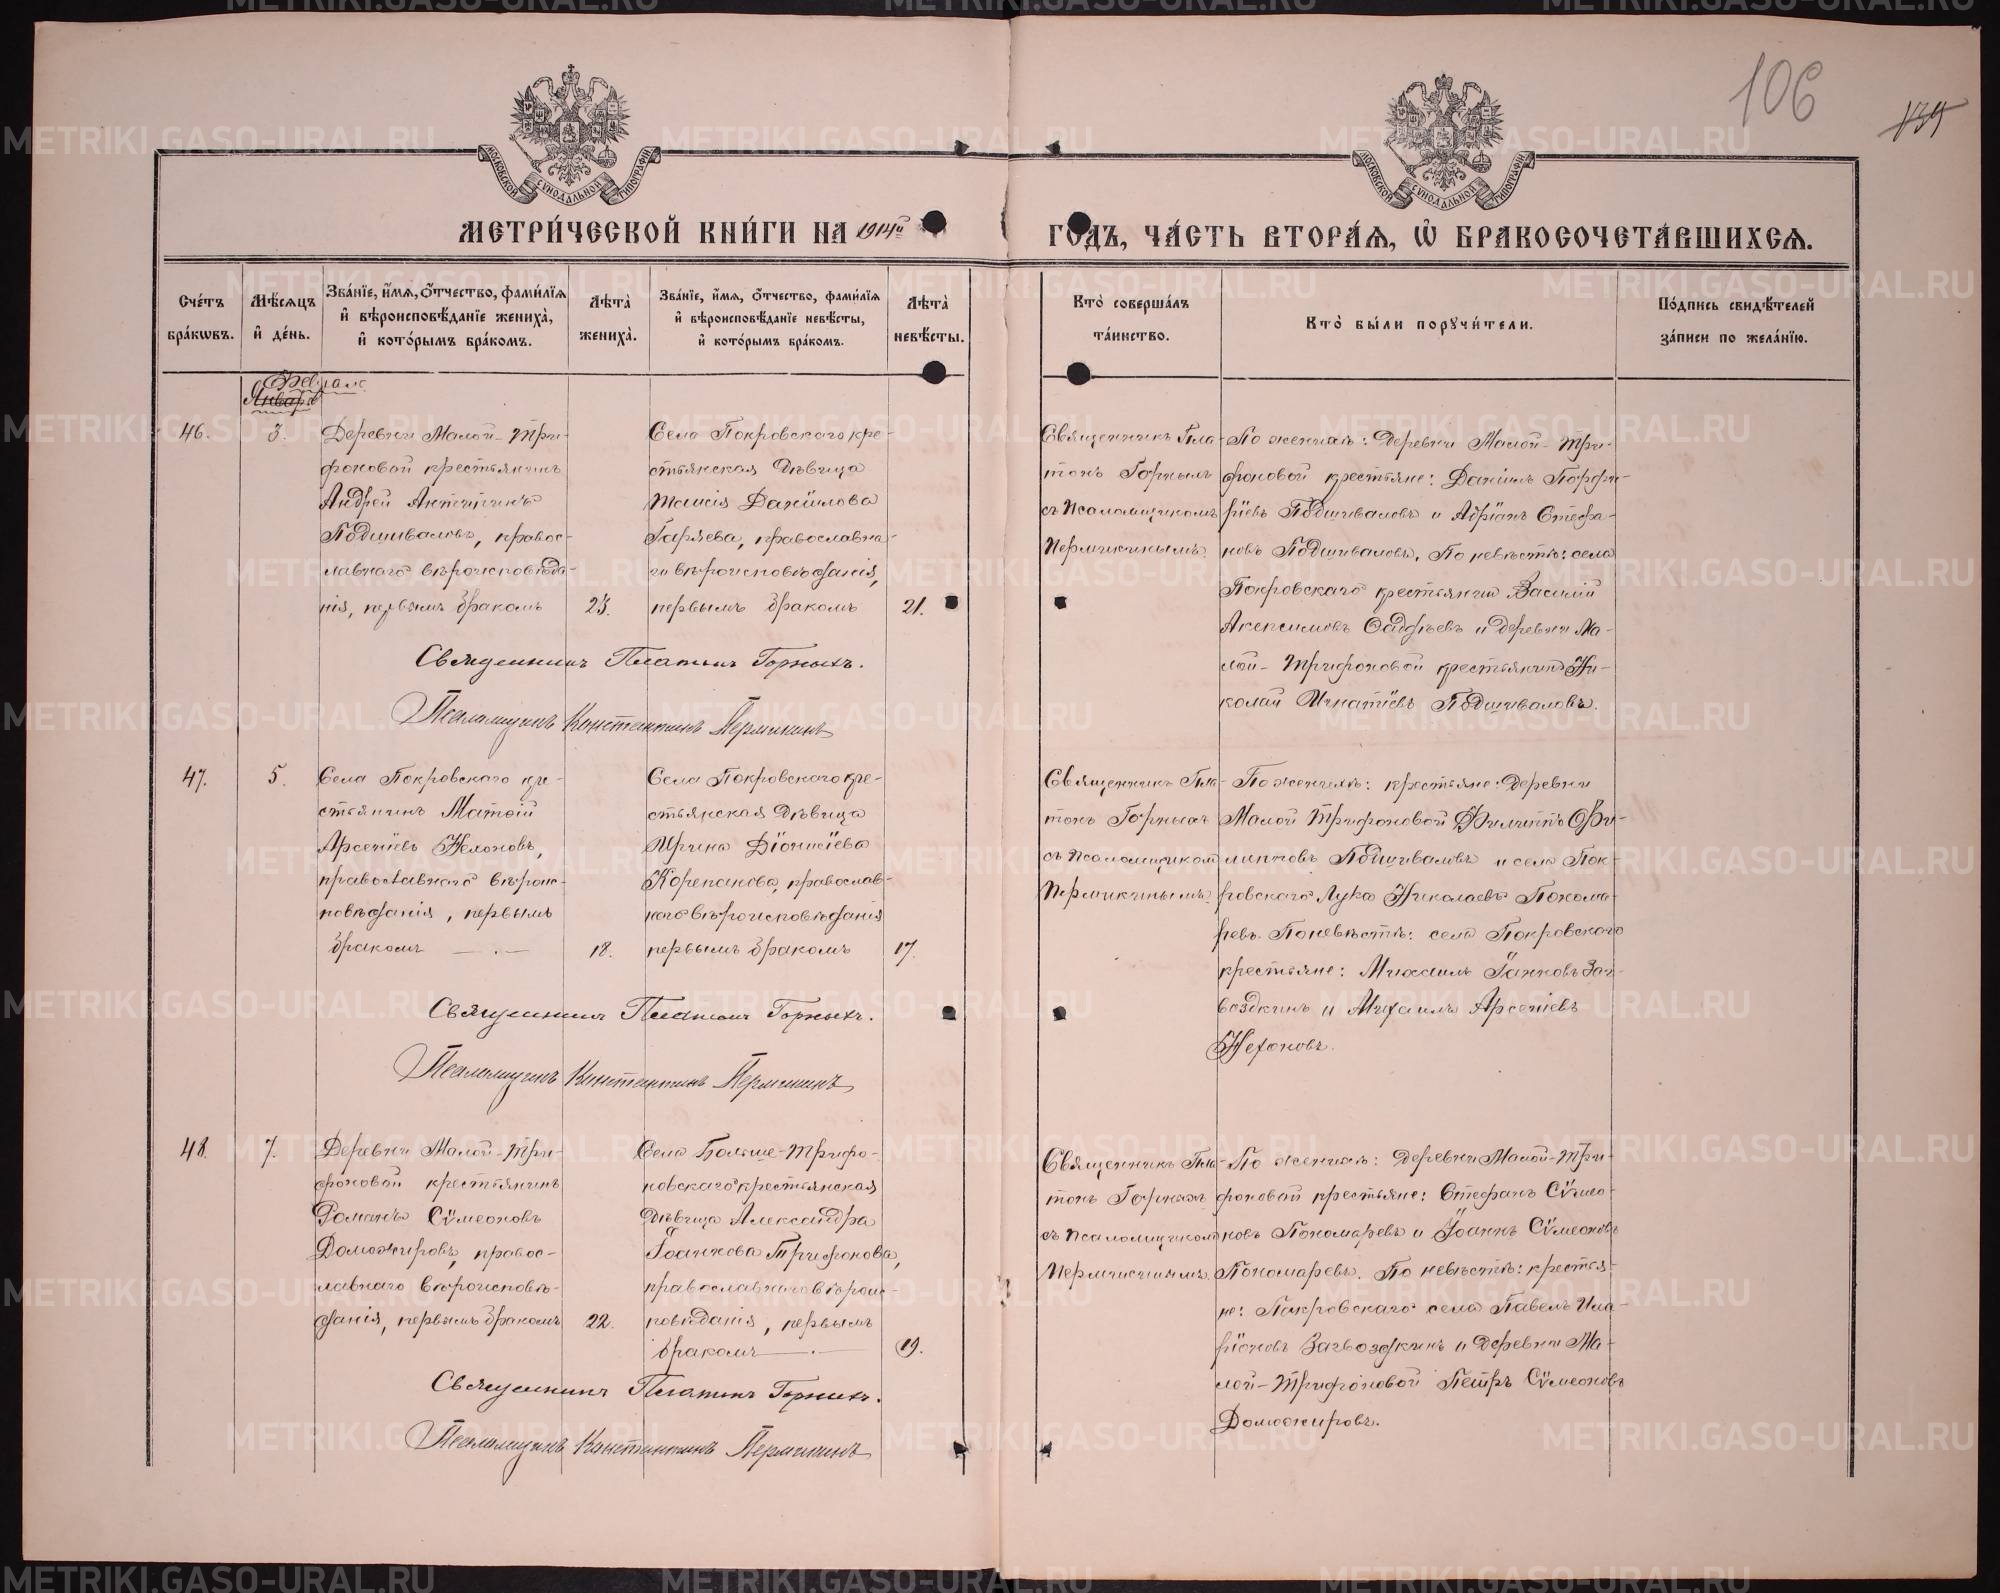 106
134
МОСКОВСКОЙ СѴНОДАЛЬНОЙ ТИПОГРАФІИ
МОСКОВСКОЙ СѴНОДАЛЬНОЙ ТИПОГРАФІИ
МЕТРИ́ЧЕСКОЙ КНИ́ГИ НА 1914й ГО́ДЪ, ЧА́СТЬ ВТОРА́Ѧ, Ѡ БРАКОСОЧЕТА́ВШИХСѦ.
Сче́тъ бра́кѡвъ.
Мѣ́сяцъ и́ де́нь.
Зва́нїе, и́мя, ѻ́тчество, фами́лїя и́ вѣроисповѣ́данїе жениха̀, и́ кото́рымъ бра́комъ.
Лѣта̀ жениха̀.
Зва́нїе, и́мя, ѻ́тчество, фами́лїя и́ вѣроисповѣ́данїе невѣ́сты, и́ кото́рымъ бра́комъ.
Лѣта̀ невѣ́сты.
Кто̀ соверша́лъ та́инство.
Кто̀ бы́ли порꙋчи́тели.
По́дпись свидѣ́телей за́писи по жела́нїю.
Февраль
Январь
46.
3.
Деревни Малой-Три-
фоновой крестьянинъ
Андрей Антипинъ
Подшиваловъ, правос-
лавнаго вѣроисповѣда-
нія, первымъ бракомъ
23.
Села Покровскаго кре-
стьянская дѣвица
Таисія Даніилова
Гаряева, православна-
го вѣроисповѣданія,
первымъ бракомъ
21.
Священникъ Пла-
тонъ Горныхъ
съ псаломщикомъ
Пермикинымъ
По женихѣ: деревни Малой-Три-
фоновой крестьяне: Даніилъ Порфи-
ріевъ Подшиваловъ и Адріанъ Стефа-
новъ Подшиваловъ. По невѣстѣ: села
Покровскаго крестьянинъ Василій
Акепсимовъ Фадѣевъ и деревни Ма-
лой-Трифоновой крестьянинъ Ни-
колай Игнатіевъ Подшиваловъ.
Священникъ Платонъ Горныхъ.
Псаломщикъ Константинъ Пермикинъ
47.
5.
Села Покровскаго кре-
стьянинъ Матѳій
Арсеніевъ Нехоновъ,
православнаго вѣроис-
повѣданія, первымъ
бракомъ
18.
Села Покровскаго кре-
стьянская дѣвица
Ирина Діонисіева
Корепанова, православ-
наго вѣроисповѣданія
первымъ бракомъ
17.
Священникъ Пла-
тонъ Горныхъ
съ псаломщиком
Пермикинымъ
По женихѣ: крестьяне: деревни
Малой Трифоновой Филиппъ Фи-
липповъ Подшиваловъ и села Пок-
ровскаго Лука Николаевъ Понома-
ревъ. По невѣстѣ: села Покровскаго
крестьяне: Михаилъ Іоанновъ Заг-
воздкинъ и Михаилъ Арсеніевъ
Нехоновъ.
Священникъ Платонъ Горныхъ.
Псаломщикъ Константинъ Пермикинъ
48.
7.
Деревни Малой-Три-
фоновой крестьянинъ
Романъ Сѵмеоновъ
Доможировъ, правос-
лавнаго вѣроисповѣ-
данія, первымъ бракомъ
22.
Села Больше-Трифо-
новскаго крестьянская
дѣвица Александра
Іоаннова Трифонова,
православнаго вѣроис-
повѣданія, первымъ
бракомъ
19.
Священникъ Пла-
тонъ Горныхъ
съ псаломщиком
Пермикинымъ
По женихѣ: деревни Малой-Три-
фоновой крестьяне: Стефанъ Сѵмео-
новъ Пономаревъ и Іоаннъ Сѵмеоновъ
Пономаревъ. По невѣстѣ: крестья-
не: Покровскаго села Павелъ Ила-
ріоновъ Загвоздкинъ и деревни Ма-
лой-Трифоновой Петръ Сѵмеоновъ
Доможировъ.
Священникъ Платонъ Горныхъ.
Псаломщикъ Константинъ Пермикинъ
METRIKI.GASO-URAL.RU